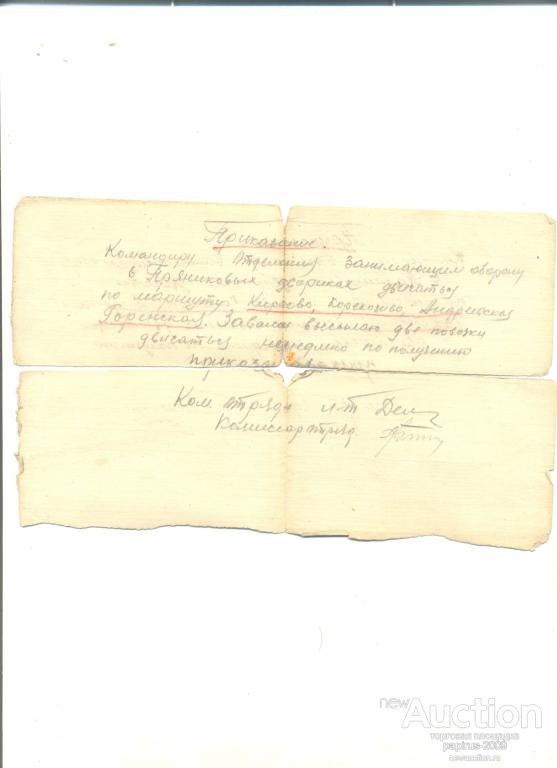 Приказание.
Командиру отделения занимающим оборону
в Пряниковых двориках двигаться
по маршруту Киреево, Корекозово,
Горенская. За вами высылаю две повозки
двигаться немедлено по получению
приказания
Ком. отряда л-т
Комиссар отряд.
newAuction
торговая площадка
papirus-2009
newauction.ru